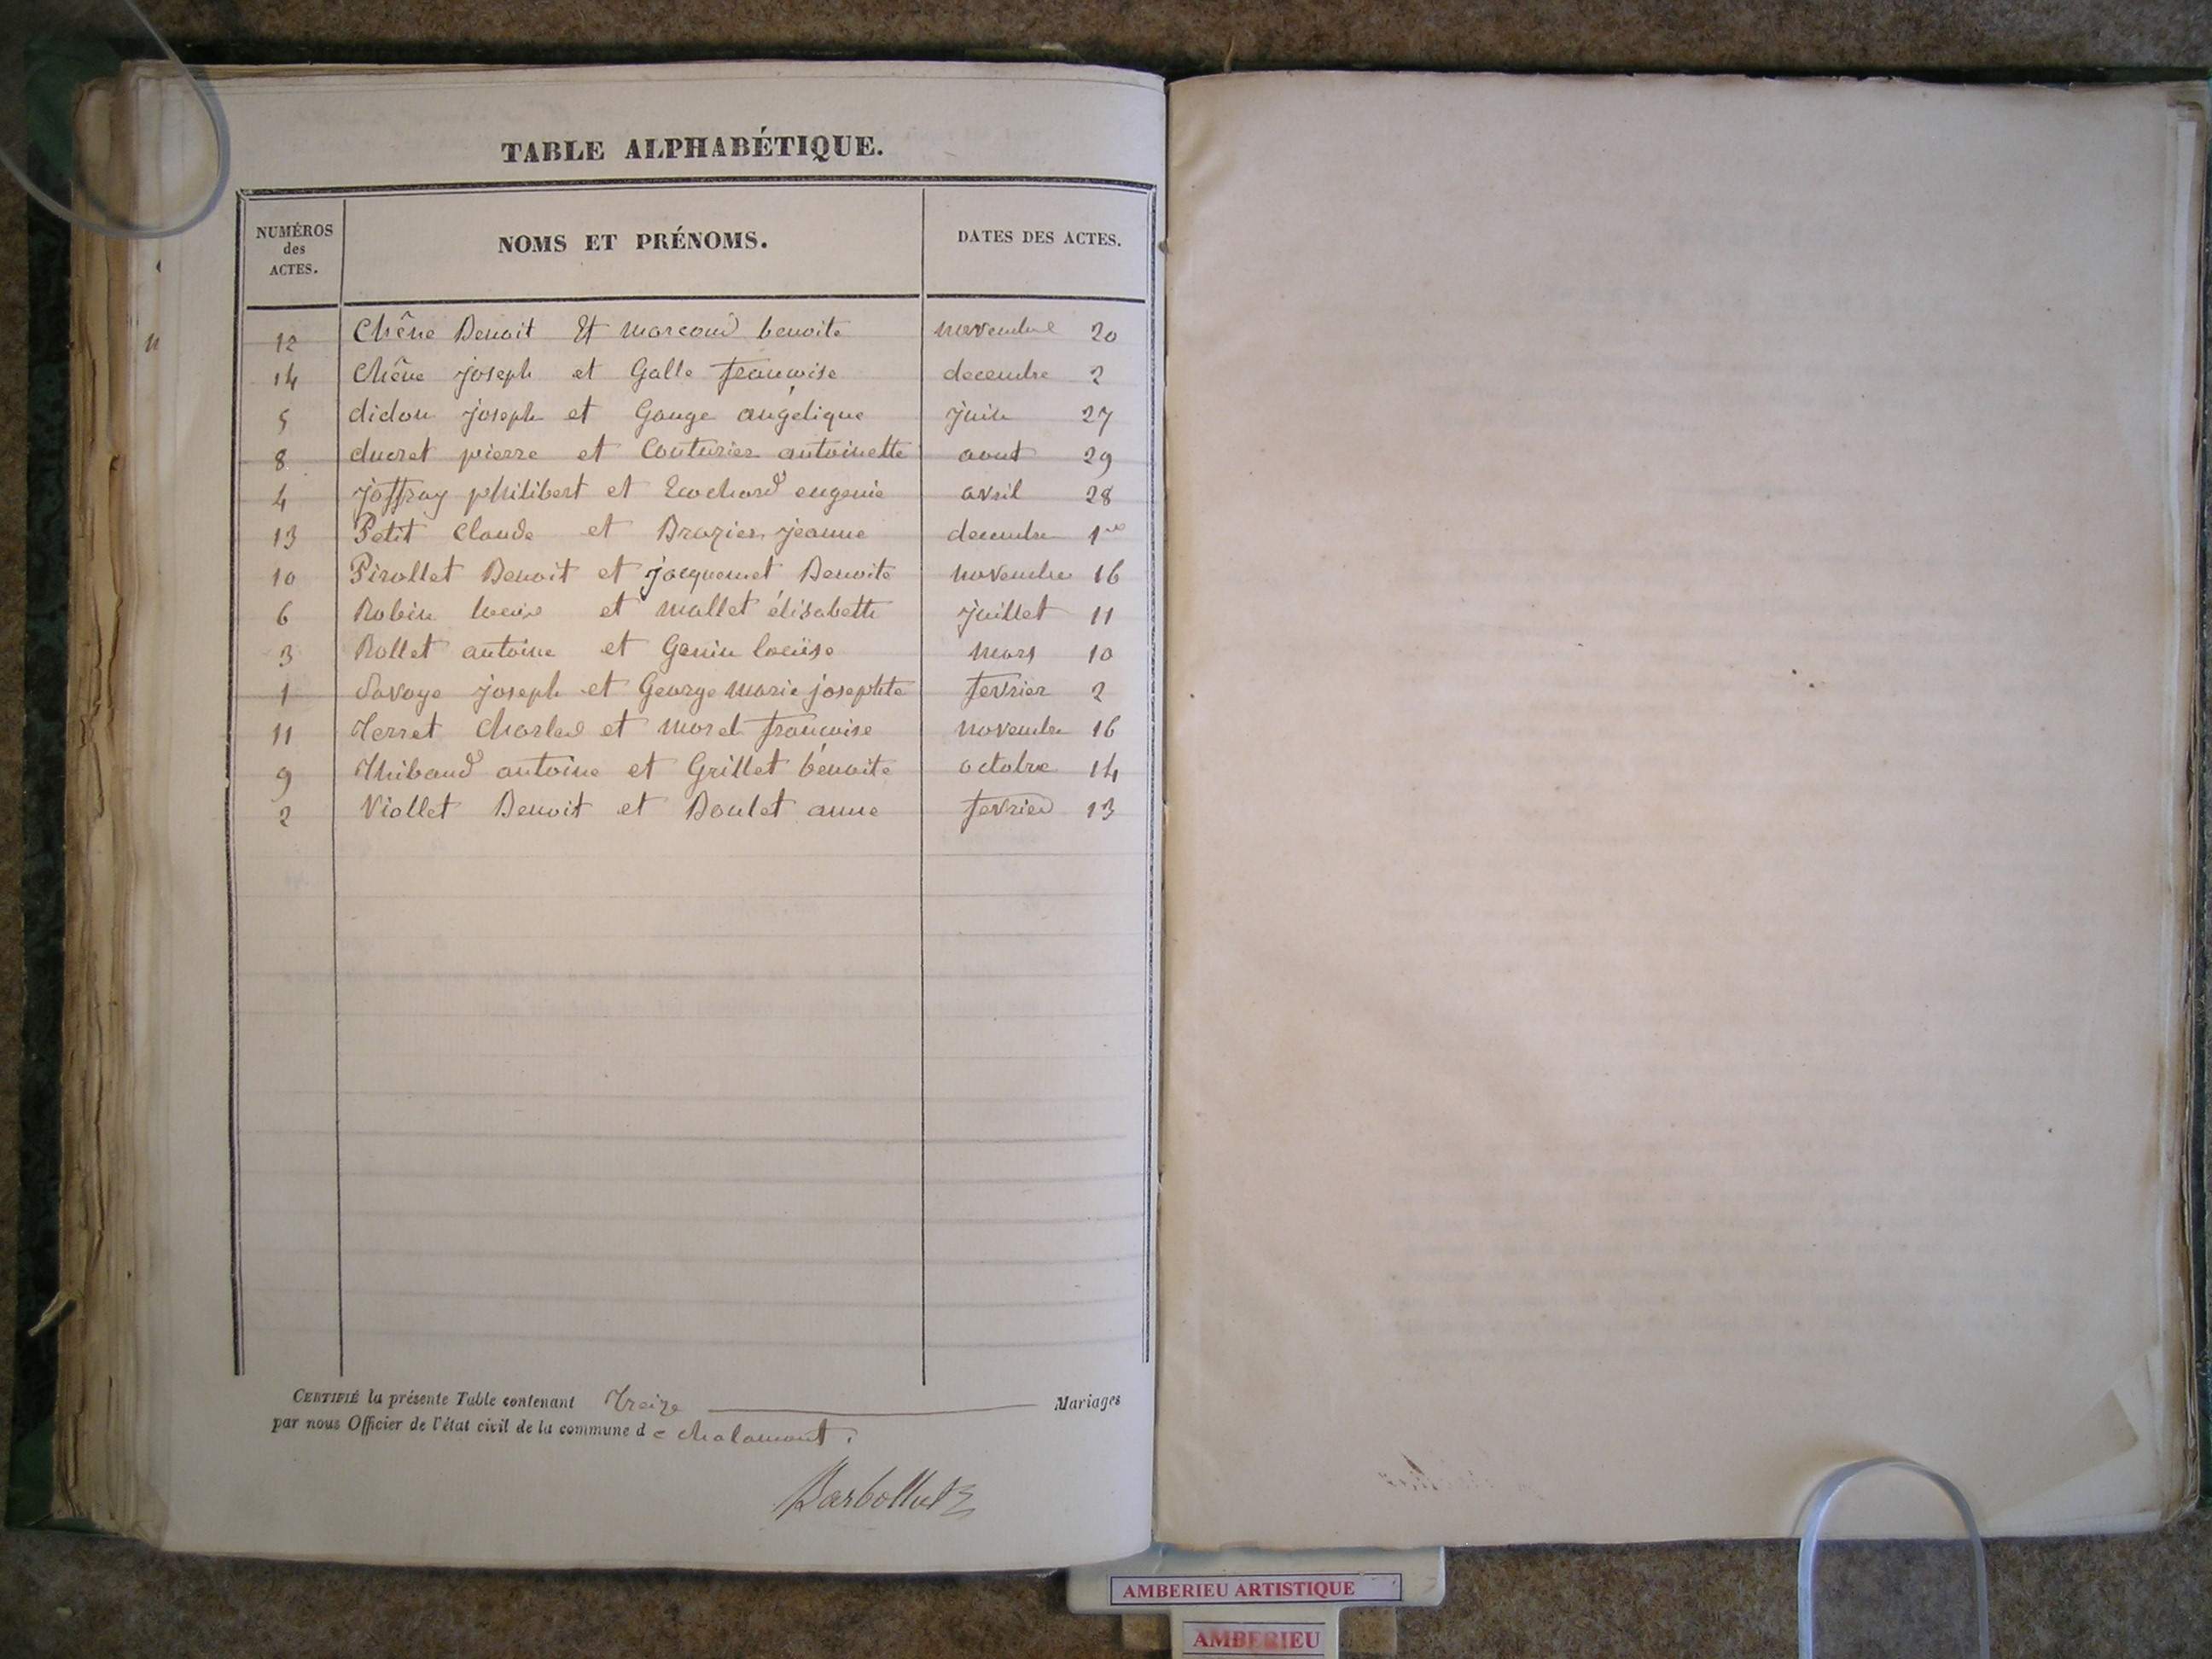 TABLE ALPHABÉTIQUE.
NUMÉROS des ACTES. NOMS ET PRÉNOMS. DATES DES ACTES.
12 Chêne Benoit Et marcoud benoite novembre 20
14 Chêne joseph et Galle françoise decembre 2
5 didon joseph et Gouge angélique juin 27
8 ducret pierre et Couturier antoinette aout 29
4 joffray philibert et Ecochard eugenie avril 28
13 Petit Claude et Brazier jeanne decembre 1er
10 Pirollet Benoit et jacquemet Benoite novembre 16
6 Robin et mallet élisabeth juillet 11
3 Rollet antoine et Genin loeuïse mars 10
1 Savoye joseph et George marie josephte fevrier 2
11 Terret Charles et morel françoise novembre 16
9 Thibaud antoine et Grillet bénoite octobre 14
2 Viollet Benoit et Boulet anne fevrier 13
CERTIFIÉ la présente Table contenant Treize Mariages
par nous Officier de l'état civil de la commune de chalamont.
AMBERIEU ARTISTIQUE
AMBERIEU